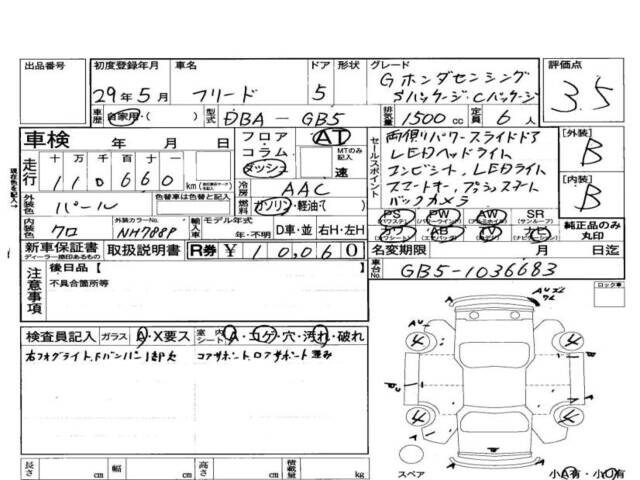 出品番号 初度登録年月 車名 ドア 形状 グレード 評価点
29年5月 フリード 5 Gホンダセンシング
Sパッケージ・Cパッケージ 3.5
車歴 自家用・( ) 型式 DBA-GB5 排気量 1500cc 定員 6人
車検 年 月 日
フロア・コラム・ダッシュ AT MTのみ記入 速
セールスポイント
両側パワースライドドア
LEDヘッドライト
LEDライト
スマートキー、プッシュスタート
バックカメラ
[外装] B
[内装] B
走行 十 万 千 百 十 一
110660 km
冷房 AAC
外装色 パール 色替車は色替と記入
燃料 ガソリン・軽油・( )
PS PW AW SR
(パワステ) (パワーウインド) (サンルーフ)
カワ AB TV ナビ
純正品のみ丸印
内装色 クロ 外装カラーNo. NH788P
輸入車 モデル年式 年・不明 D車・並 右H・左H
新車保証書 取扱説明書 R券 ¥10,060
ディーラー捺印あるもの
名変期限 月 日迄
車台No. GB5-1036683
注意事項 後日品[
不具合箇所等
ロック車
検査員記入 ガラス A・X要ス 室内シート A・コゲ・穴・汚れ・破れ
右フォグライト、Fバンパー
コアサポート、ロアサポート
AU
4 4
A A
4 4
スペア 小A有・小U有
長さ cm 幅 cm 高さ cm 積載量 kg